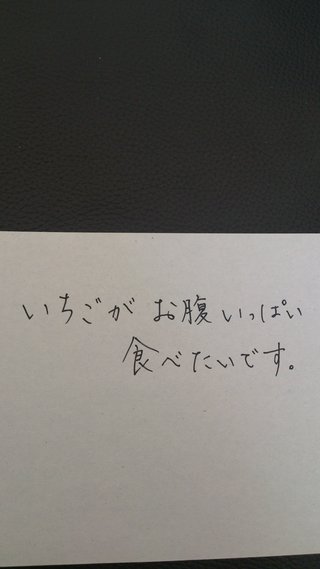 いちごが お腹いっぱい
食べたいです。